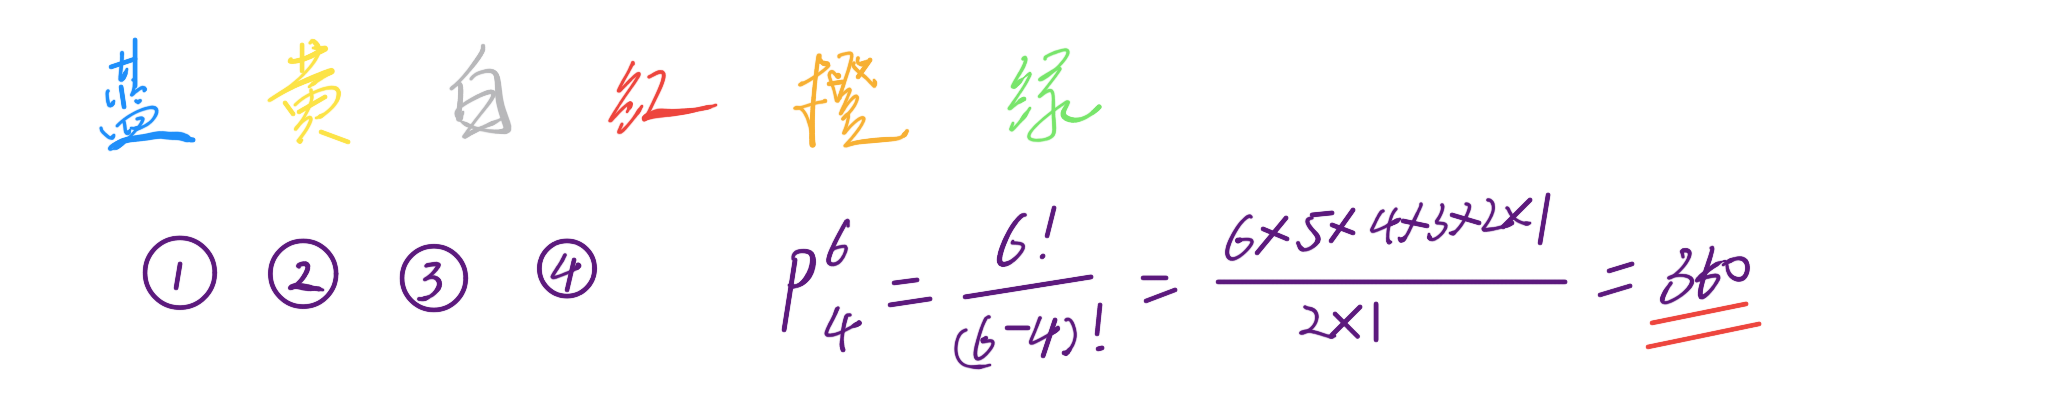 蓝 黄 白 红 橙 绿
① ② ③ ④ P⁶₄ = 6!/(6-4)! = 6×5×4×3×2×1/2×1 = 360